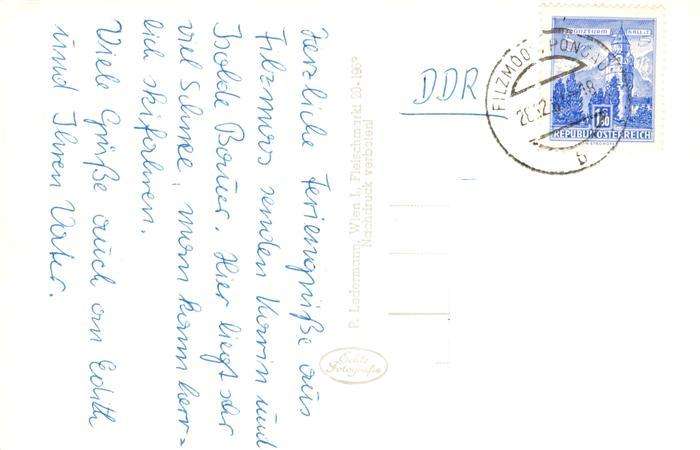 Herzliche Feriengrüße aus
Filzmoos senden Karin und
Isolde Bauer. Hier liegt sehr
viel Schnee, man kann herr=
lich skifahren.
Viele Grüße auch an Edith
und Ihren Vater.
P. Ledermann, Wien I., Fleischmarkt 20
Nachdruck verboten!
Echte
Fotografie
DDR
FILZMOOS PONGAU
b
REPUBLIK ÖSTERREICH